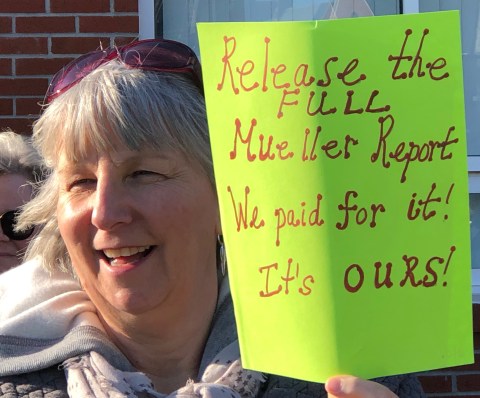 Release the
FULL
Mueller Report
We paid for it!
It's OURS!